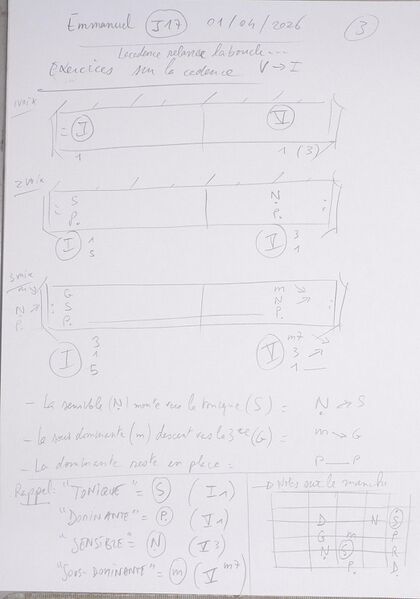 Emmanuel J17 01/04/2026 3
La cadence relance la boucle...
Exercices sur la cadence V → I
1 voix
I V
1 1 (3)
2 voix
S N
P. P.
I 1 V 3
5 1
3 voix
G m
N S N
P. P. P.
I 3 V m7
1 3
5 1
- La sensible (N) monte vers la tonique (S) = N → S
- La sous dominante (m) descend vers la 3ce (G) = m → G
- La dominante reste en place = P __ P
Rappel: "TONIQUE" = S (I 1)
"DOMINANTE" = P. (V 1)
"SENSIBLE" = N (V 3)
"SOUS-DOMINANTE" = m (V m7)
→ Notes sur le manche
D N S
G m P
N S R
P. D